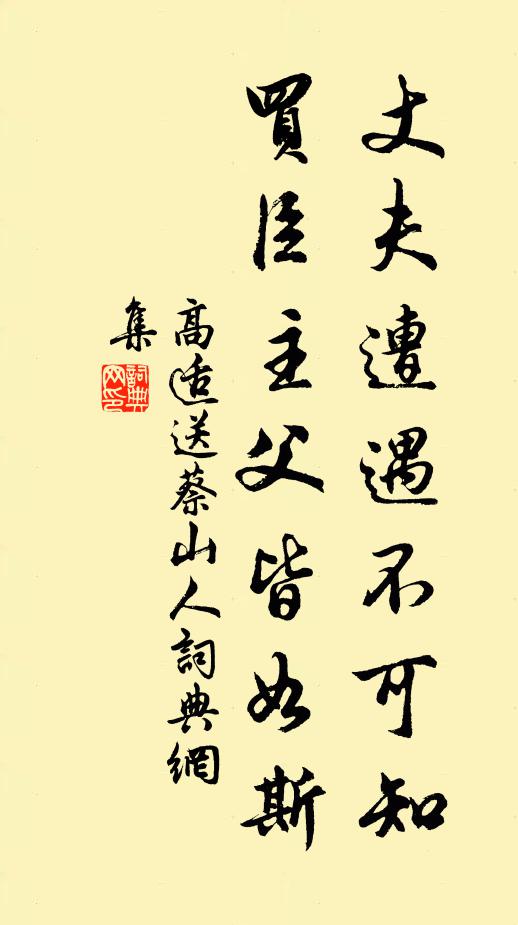 丈夫遭遇不可知
買臣主父皆如斯
高适送蔡山人詞典網
集
詞典網印